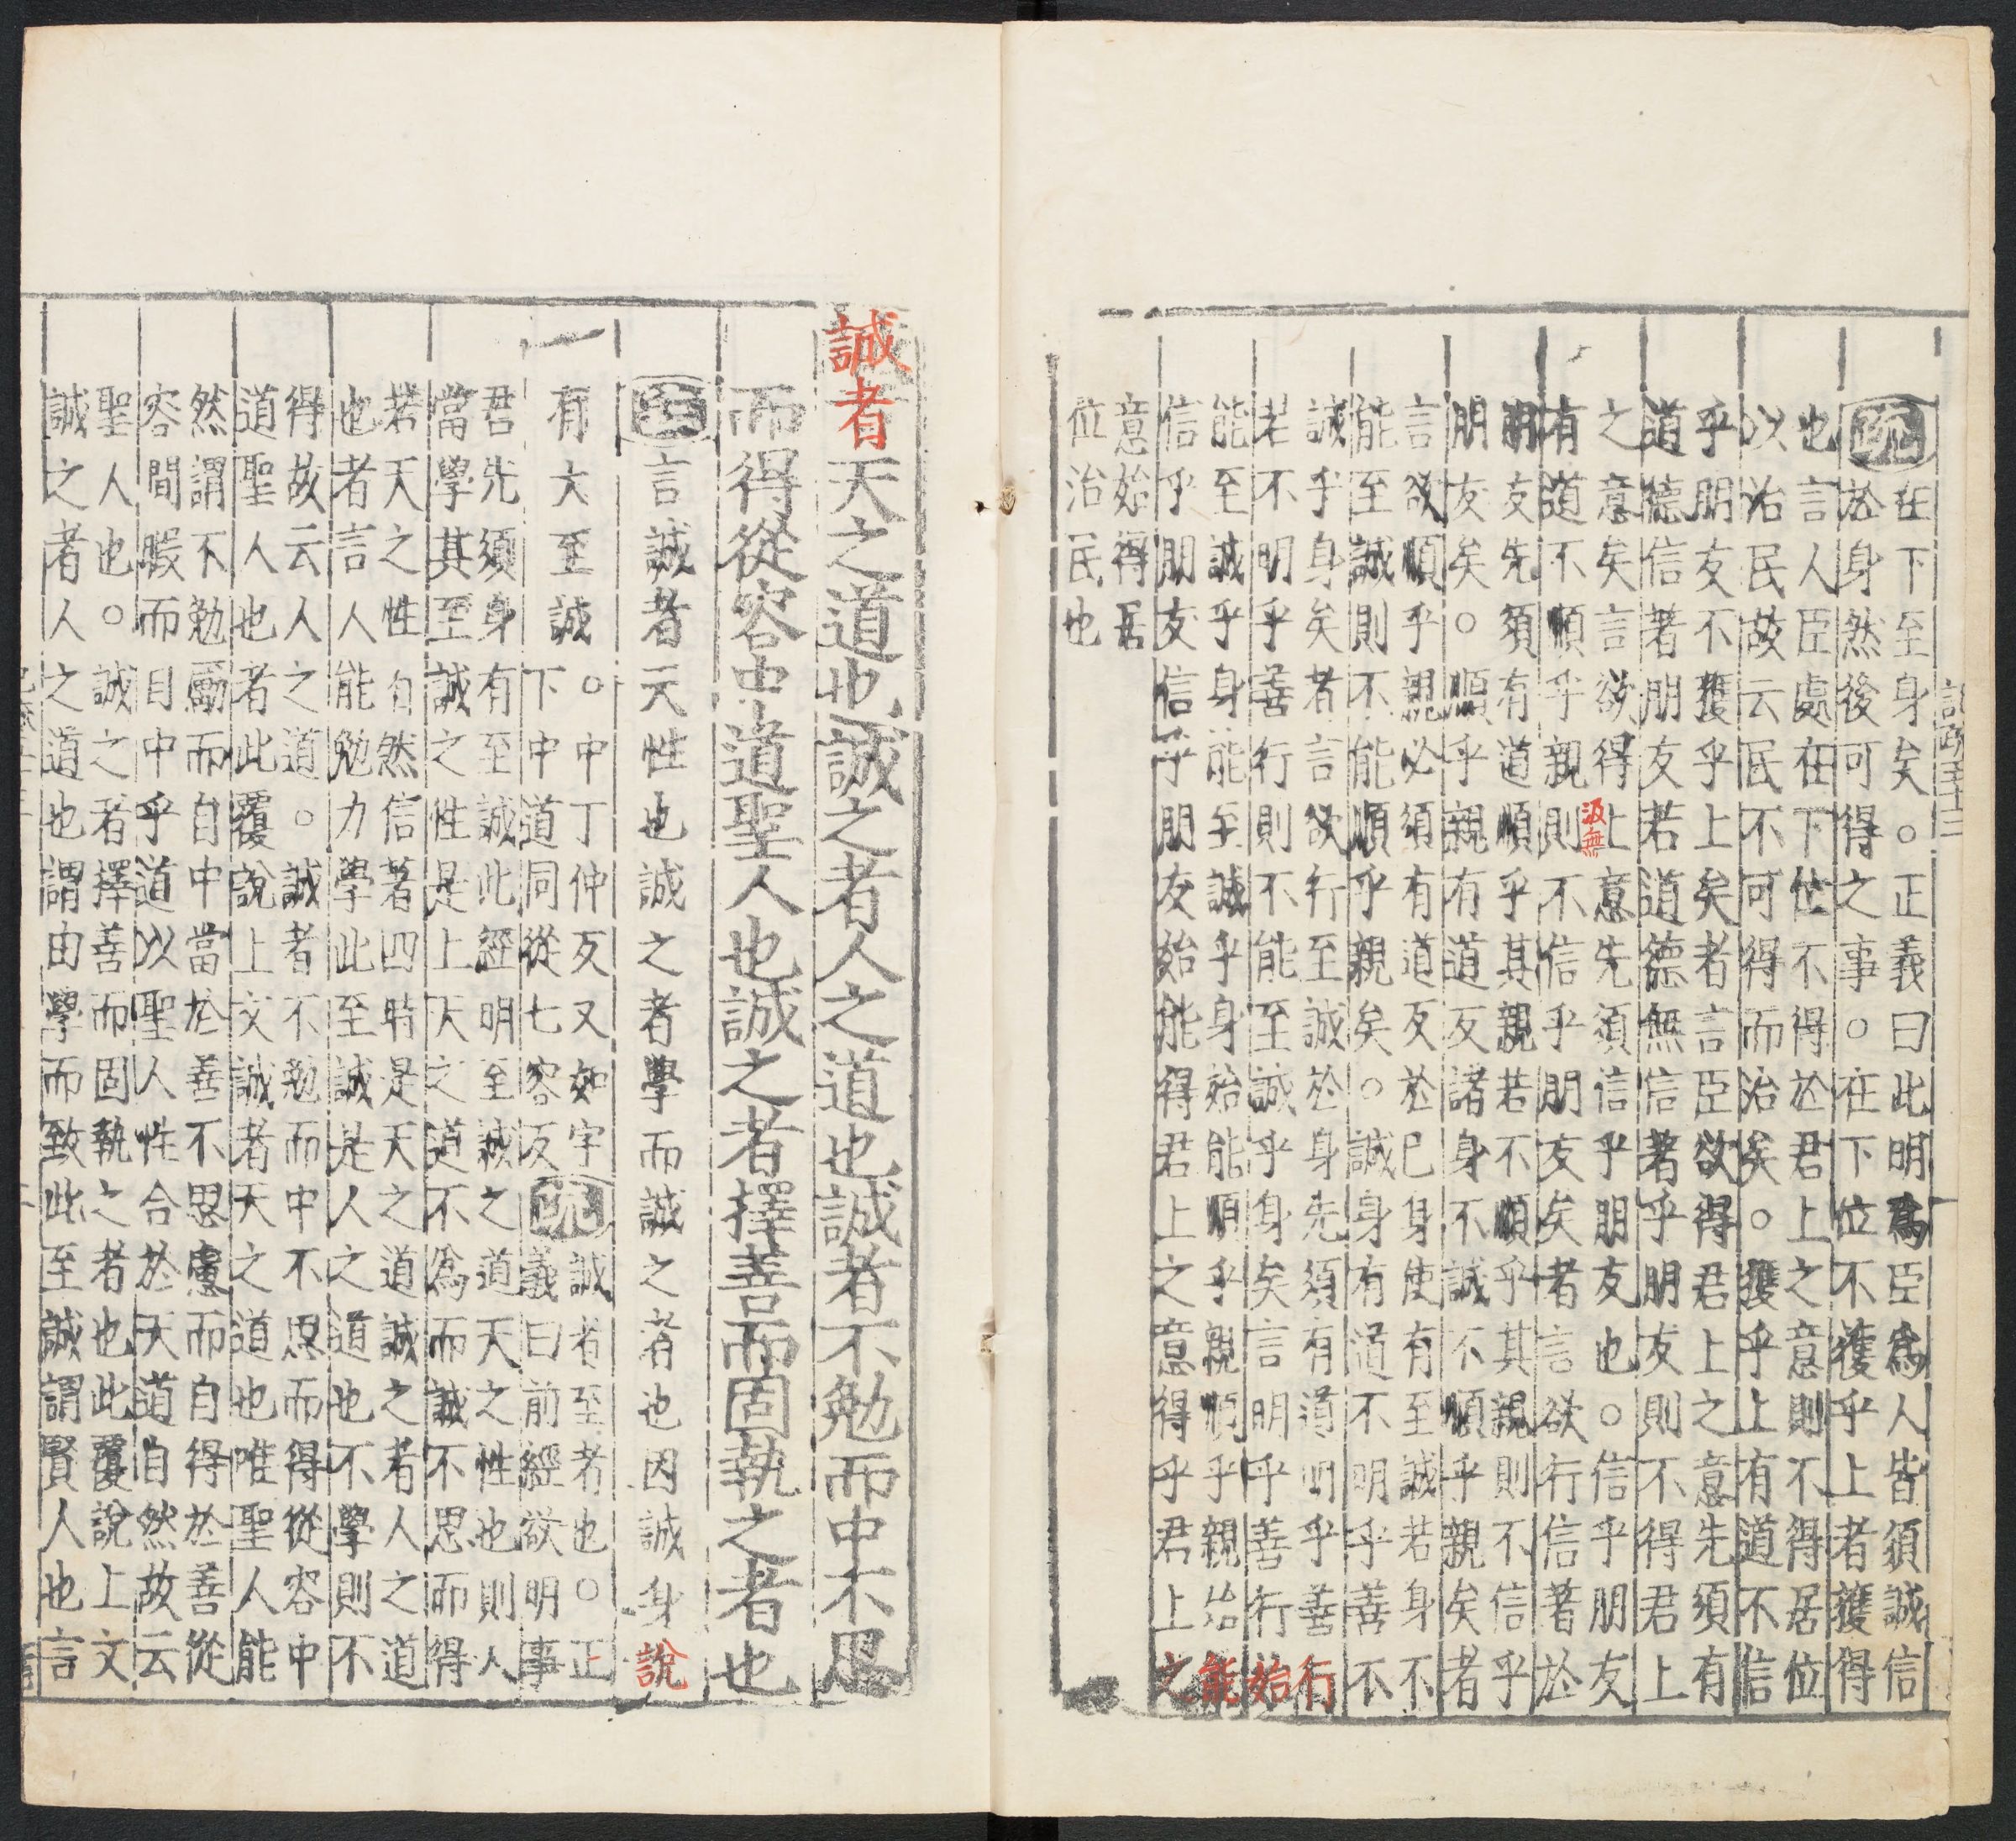 疏在下至身矣。正義曰此明爲臣爲人皆須誠信
於身然後可得之事。在下位不獲乎上者獲得
也言人臣處在下位不得於君上之意則不得居位
以治民故云民不可得而治矣。獲乎上有道不信
乎朋友不獲乎上矣者言臣欲得君上之意先須有
道德信著朋友若道德無信著乎朋友則不得君上
之意矣言欲得上意先須信乎朋友也。信乎朋友
汲無
有道不順乎親則不信乎朋友矣者言欲行信著於
朋友先須有道順乎其親若不順乎其親則不信乎
朋友矣。順乎親有道反諸身不誠不順乎親矣者
言欲順乎親必須有道反於己身使有至誠若身不
能至誠則不能順乎親矣。誠身有道不明乎善不
誠乎身矣者言欲行至誠於身先須有道明乎善行
若不明乎善行則不能至誠乎身矣言明乎善行始
能至誠乎身能至誠乎身始能順乎親順乎親始能
信乎朋友信乎朋友始能得君上之意得乎君上之
意始得居
位治民也
誠者天之道也誠之者人之道也誠者不勉而中不思
而得從容中道聖人也誠之者擇善而固執之者也
註言誠者天性也誠之者學而誠之者也因誠身說
有大至誠
。中中丁仲反又如字誠者至者也。正
下中道同從七容反疏義曰前經欲明事
君先須身有至誠此經明至誠之道天之性也則人
當學其至誠之性是上天之道不爲而誠不思而得
若天之性自然信著四時是天之道誠之者人之道
也者言人能勉力學此至誠是人之道也不學則不
得故云人之道。誠者不勉而中不思而得從容中
道聖人也者此覆說上文誠者天之道也唯聖人能
然謂不勉勵而自中當於善不思慮而自得於善從
容間暇而自中乎道以聖人性合於天道自然故云
聖人也。誠之者擇善而固執之者也此覆說上文
誠之者人之道也謂由學而致此至誠謂賢人也言